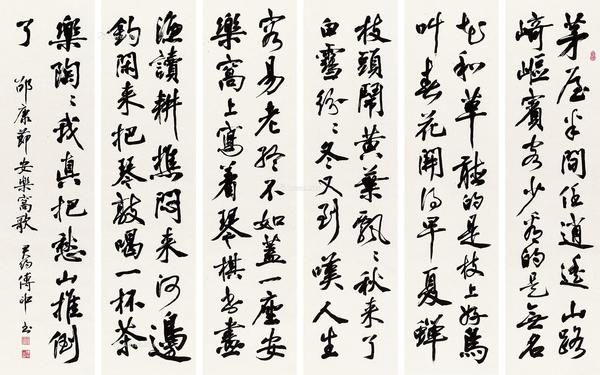 茅屋半間任逍遙山路
崎嶇賓客少看的是無名
花和草聽的是枝上好鳥
叫春花開得早夏蟬
枝頭鬧黃葉飄〻秋來了
白雪紛〻冬又到嘆人生
容易老終不如蓋一座安
樂窩上寫着琴棋書畫
漁讀耕樵悶來河邊
釣閑來把琴敲喝一杯茶
樂陶〻我真把愁山推倒
了
邵康節安樂窩歌
君約傅申書